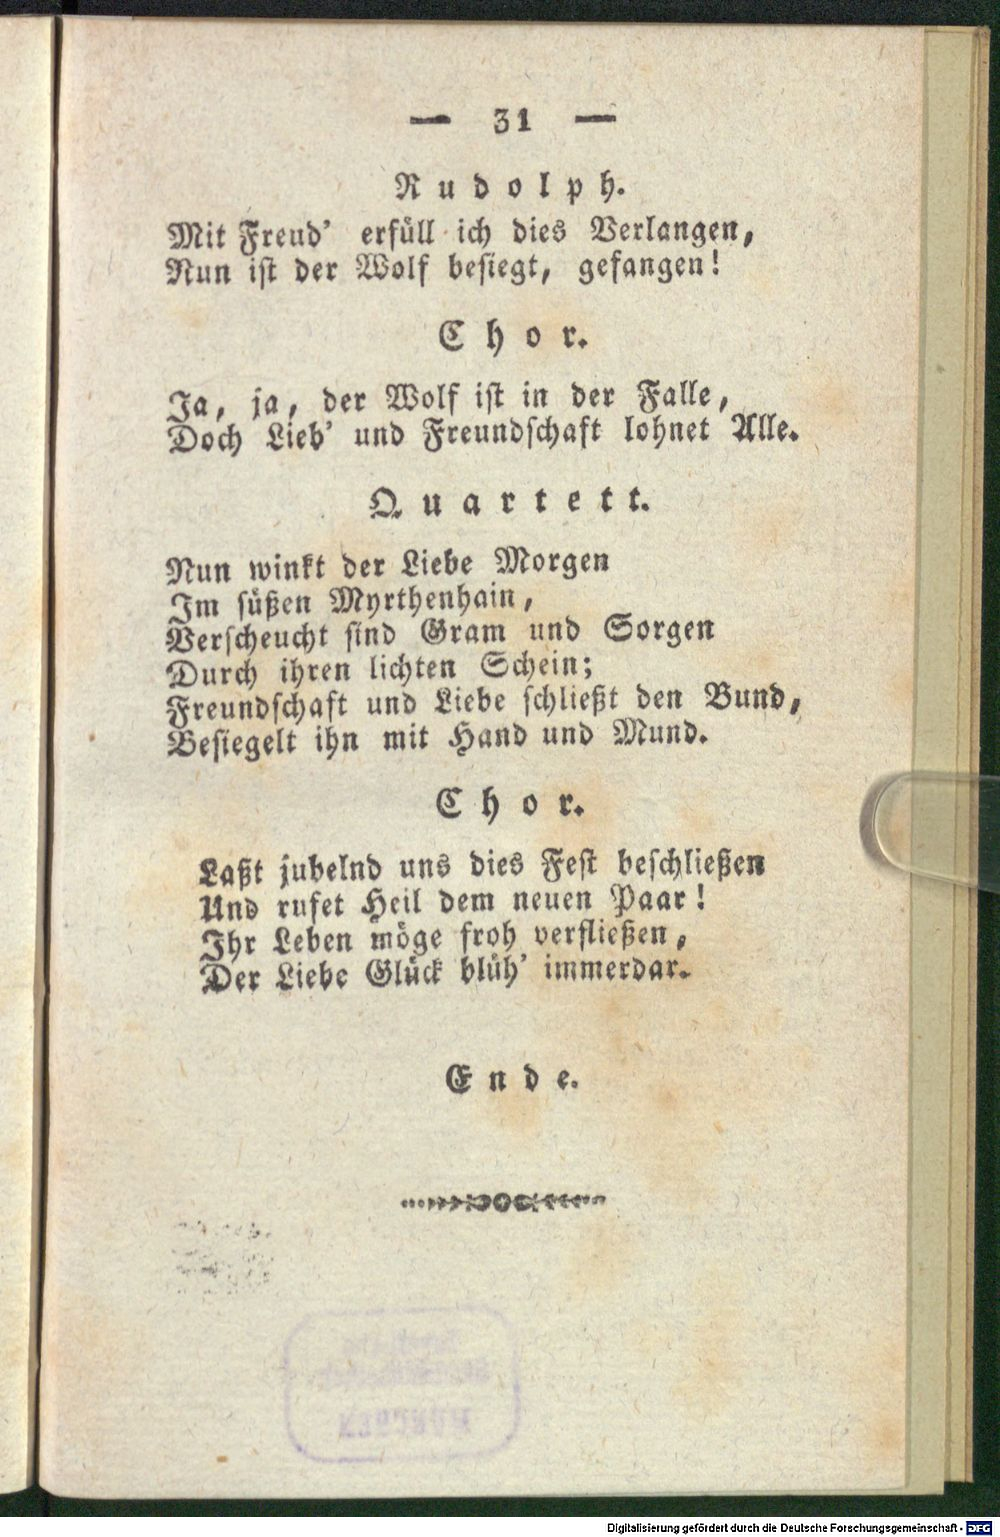 — 31 —
Rudolph.
Mit Freud' erfüll ich dies Verlangen,
Nun ist der Wolf besiegt, gefangen!
Chor.
Ja, ja, der Wolf ist in der Falle,
Doch Lieb' und Freundschaft lohnet Alle.
Quartett.
Nun winkt der Liebe Morgen
Im süßen Myrthenhain,
Verscheucht sind Gram und Sorgen
Durch ihren lichten Schein;
Freundschaft und Liebe schließt den Bund,
Besiegelt ihn mit Hand und Mund.
Chor.
Laßt jubelnd uns dies Fest beschließen
Und rufet Heil dem neuen Paar!
Ihr Leben möge froh verfließen,
Der Liebe Glück blüh' immerdar.
Ende.
Digitalisierung gefördert durch die Deutsche Forschungsgemeinschaft - DFG